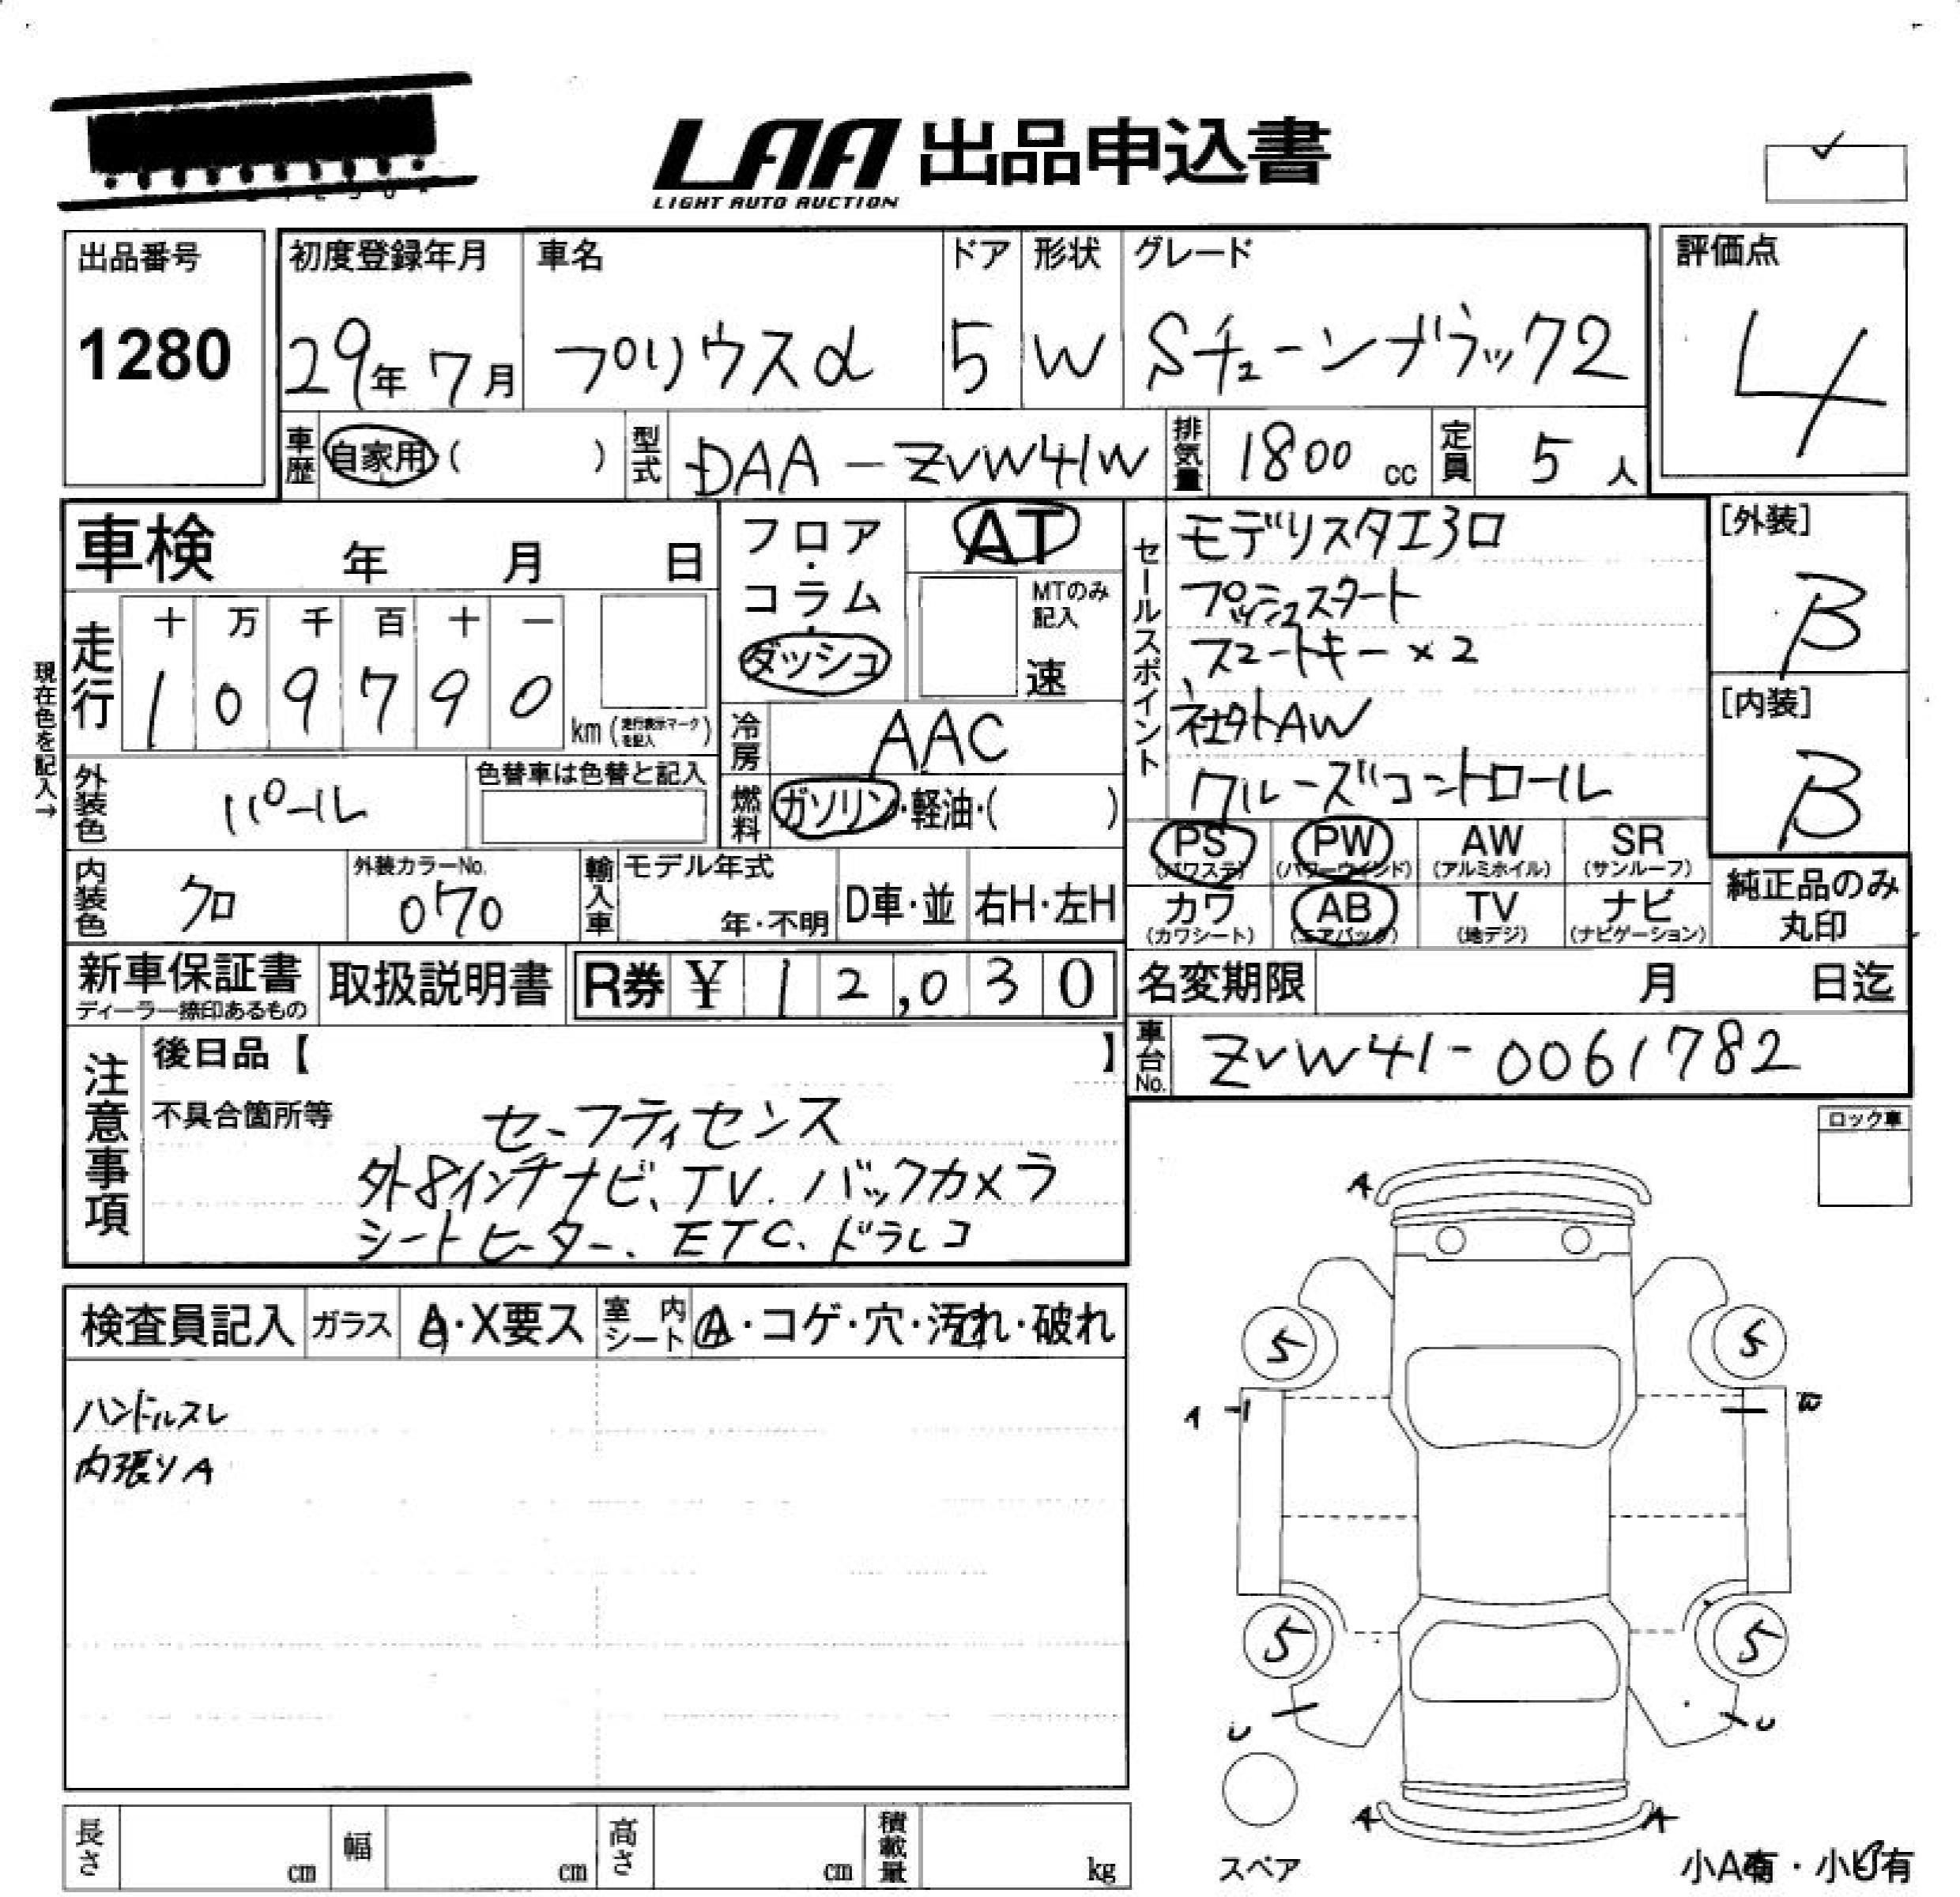 LAA 出品申込書
LIGHT AUTO AUCTION
出品番号
1280
初度登録年月
29年 7月
車名
プリウスα
ドア
5
形状
W
グレード
Sチューンブラック2
評価点
4
車歴 自家用 ( )
型式 DAA-ZVW41W
排気量 1800 cc
定員 5 人
車検 年 月 日
フロア・コラム・ダッシュ
AT
MTのみ記入
速
セールスポイント
モデリスタエアロ
プッシュスタート
スマートキー×2
社外AW
クルーズコントロール
[外装]
B
[内装]
B
現在色を記入→
走行
十 万 千 百 十 一
1 0 9 7 9 0 km (走行表示マークを記入)
冷房 AAC
外装色 パール
色替車は色替と記入
燃料 ガソリン・軽油・( )
PS (パワステ)
PW (パワーウインド)
AW (アルミホイル)
SR (サンルーフ)
カワ (カワシート)
AB (エアバック)
TV (地デジ)
ナビ (ナビゲーション)
純正品のみ丸印
内装色 クロ
外装カラーNo.
070
輸入車
モデル年式
年・不明
D車・並
右H・左H
新車保証書
ディーラー捺印あるもの
取扱説明書
R券 ¥ 12,030
名変期限 月 日迄
車台No. ZVW41-0061782
注意事項
後日品【 】
不具合箇所等
セーフティセンス
外8インチナビ、TV、バックカメラ
シートヒーター、ETC、ドラレコ
ロック車
検査員記入
ガラス A・X要ス
室内シート A・コゲ・穴・汚れ・破れ
ハンドルスレ
内張りA
A
5 5
A
5 5
U U
A A
スペア
小A有・小U有
長さ cm
幅 cm
高さ cm
積載量 kg